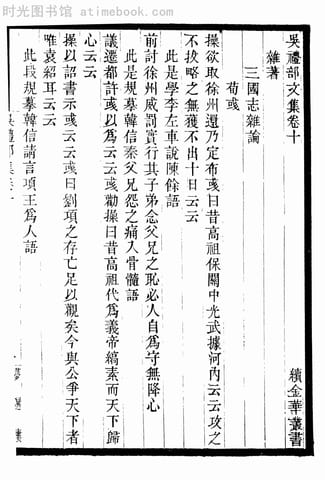 时光图书馆 - www.dpm.org
吳禮部文集卷十
續金華叢書
雜著
三國志雜論
荀彧
操欲取徐州還乃定布彧曰昔高祖保關中光武據河内云云攻之
不拔略之無獲不出十日云云
此是學李左車說陳餘語
前討徐州威罰實行其子弟念父兄之恥必人自爲守無降心
此是規摹韓信秦父兄怨之痛入骨髓語
議遷都許或以爲云云彧勸操曰昔高祖代爲義帝縞素而天下歸
心云云
操以詔書示彧云云彧曰劉項之存亡足以觀矣今與公爭天下者
唯袁紹耳云云
此段規摹韓信請言項王爲人語